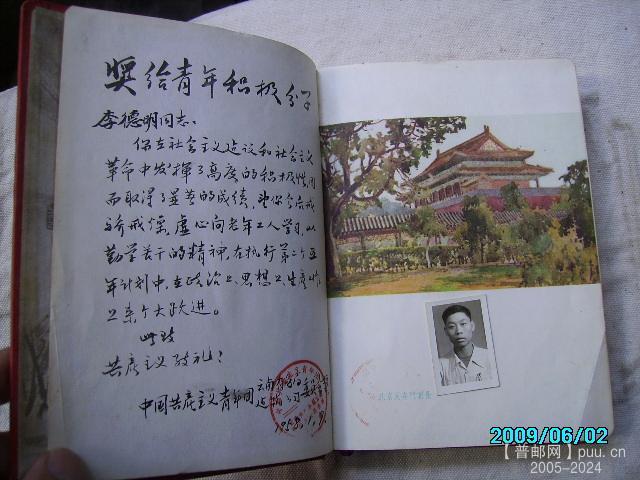 奖给青年积极分子
李德明同志:
你在社会主义建设和社会主义
革命中发挥了高度的积极性,因
而取得了显著的成绩,望你今后戒
骄戒燥,虚心向老年工人学习,以
勤学苦干的精神,在执行第二个五
年计划中,在政治上、思想上、生产
上来个大跃进。
此致
共产主义敬礼!
中国共产主义青年团云南
1958.1.
北京天安门
2009/06/02
【普邮网】puu.cn
2005-2024